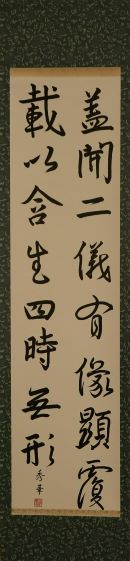 蓋聞二儀有像顯覆
載以含生四時無形
秀華